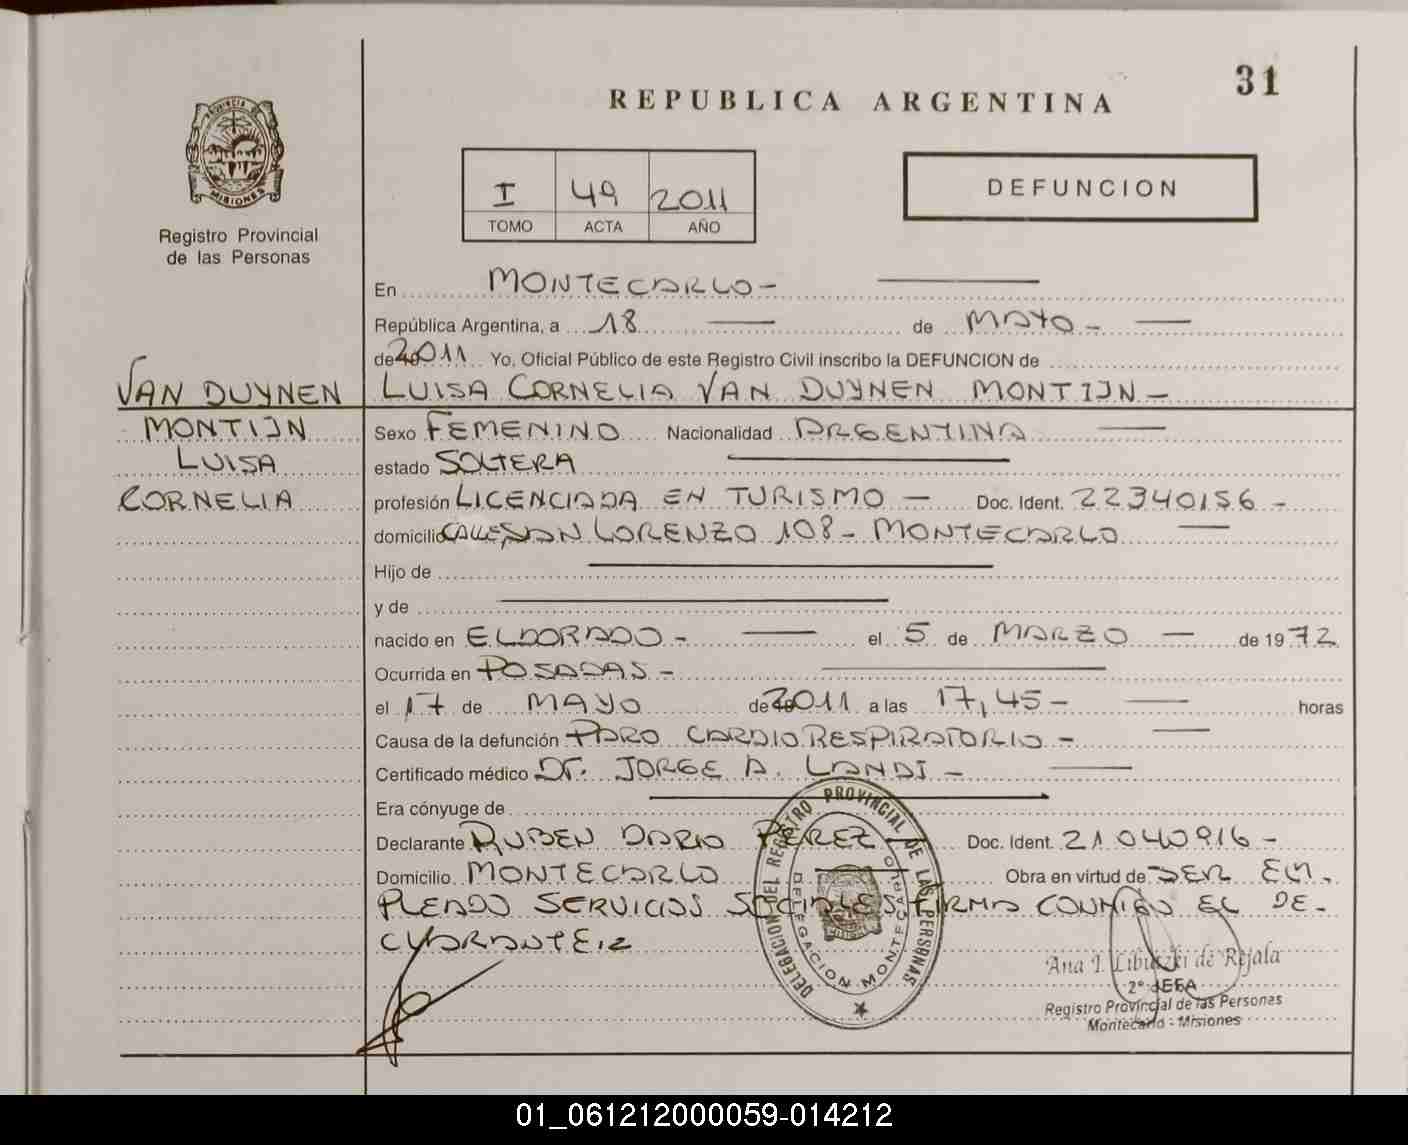 31
REPUBLICA ARGENTINA
PROVINCIA DE
MISIONES
Registro Provincial
de las Personas
I 49 2011
TOMO ACTA AÑO
DEFUNCION
En MONTECARLO-
República Argentina, a 18 de MAYO -
de 2011 Yo, Oficial Público de este Registro Civil inscribo la DEFUNCION de
VAN DUYNEN LUISA CORNELIA VAN DUYNEN MONTIJN -
MONTIJN Sexo FEMENINO Nacionalidad ARGENTINA
LUISA estado SOLTERA
CORNELIA profesión LICENCIADA EN TURISMO - Doc. Ident. 22340156 -
domicilio CALLE SAN LORENZO 108 - MONTECARLO
Hijo de
y de
nacido en ELDORADO - el 5 de MARZO - de 1972
Ocurrida en POSADAS -
el 17 de MAYO de 2011 a las 17,45 - horas
Causa de la defunción PARO CARDIO RESPIRATORIO -
Certificado médico Dr. JORGE A. LANDI -
Era cónyuge de
Declarante RUBEN DARIO PEREZ - Doc. Ident. 21040916 -
Domicilio MONTECARLO Obra en virtud de SER EM-
PLEADO SERVICIOS SOCIALES FIRMA CONMIGO EL DE-
CLARANTE
DELEGACION DEL REGISTRO PROVINCIAL DE LAS PERSONAS
DELEGACION MONTECARLO
MISIONES
Ana I. de Rejala
2° JEFA
Registro Provincial de las Personas
Montecarlo - Misiones
01_061212000059-014212